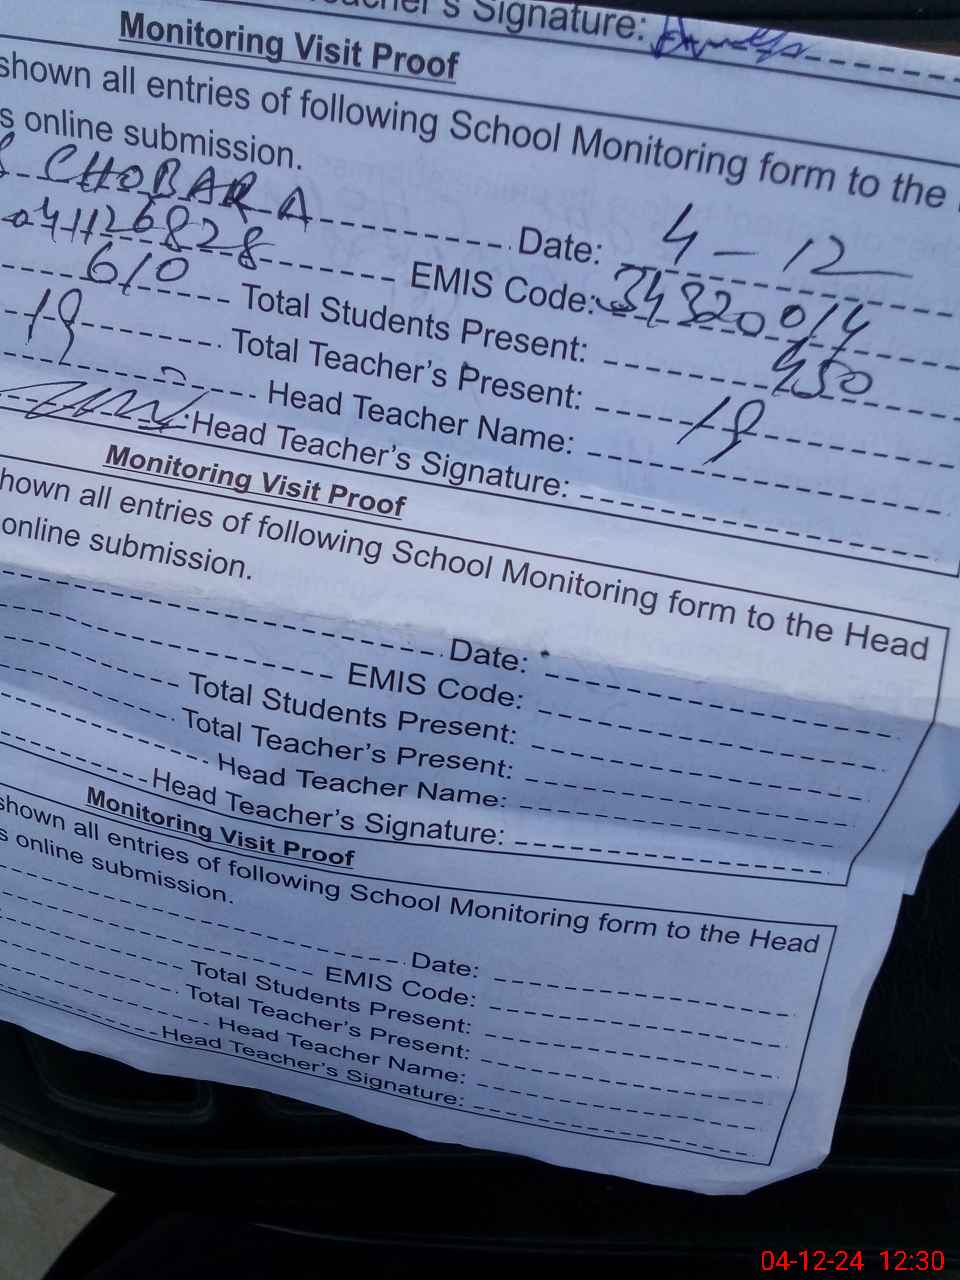 Teacher's Signature:
Monitoring Visit Proof
shown all entries of following School Monitoring form to the
online submission.
CHOBARA Date: 4-12
04126828 EMIS Code: 34320014
610 Total Students Present: 450
19 Total Teacher's Present: 19
Head Teacher Name:
Head Teacher's Signature:
Monitoring Visit Proof
shown all entries of following School Monitoring form to the Head
online submission.
Date:
EMIS Code:
Total Students Present:
Total Teacher's Present:
Head Teacher Name:
Head Teacher's Signature:
Monitoring Visit Proof
shown all entries of following School Monitoring form to the Head
s online submission.
Date:
EMIS Code:
Total Students Present:
Total Teacher's Present:
Head Teacher Name:
Head Teacher's Signature:
04-12-24 12:30